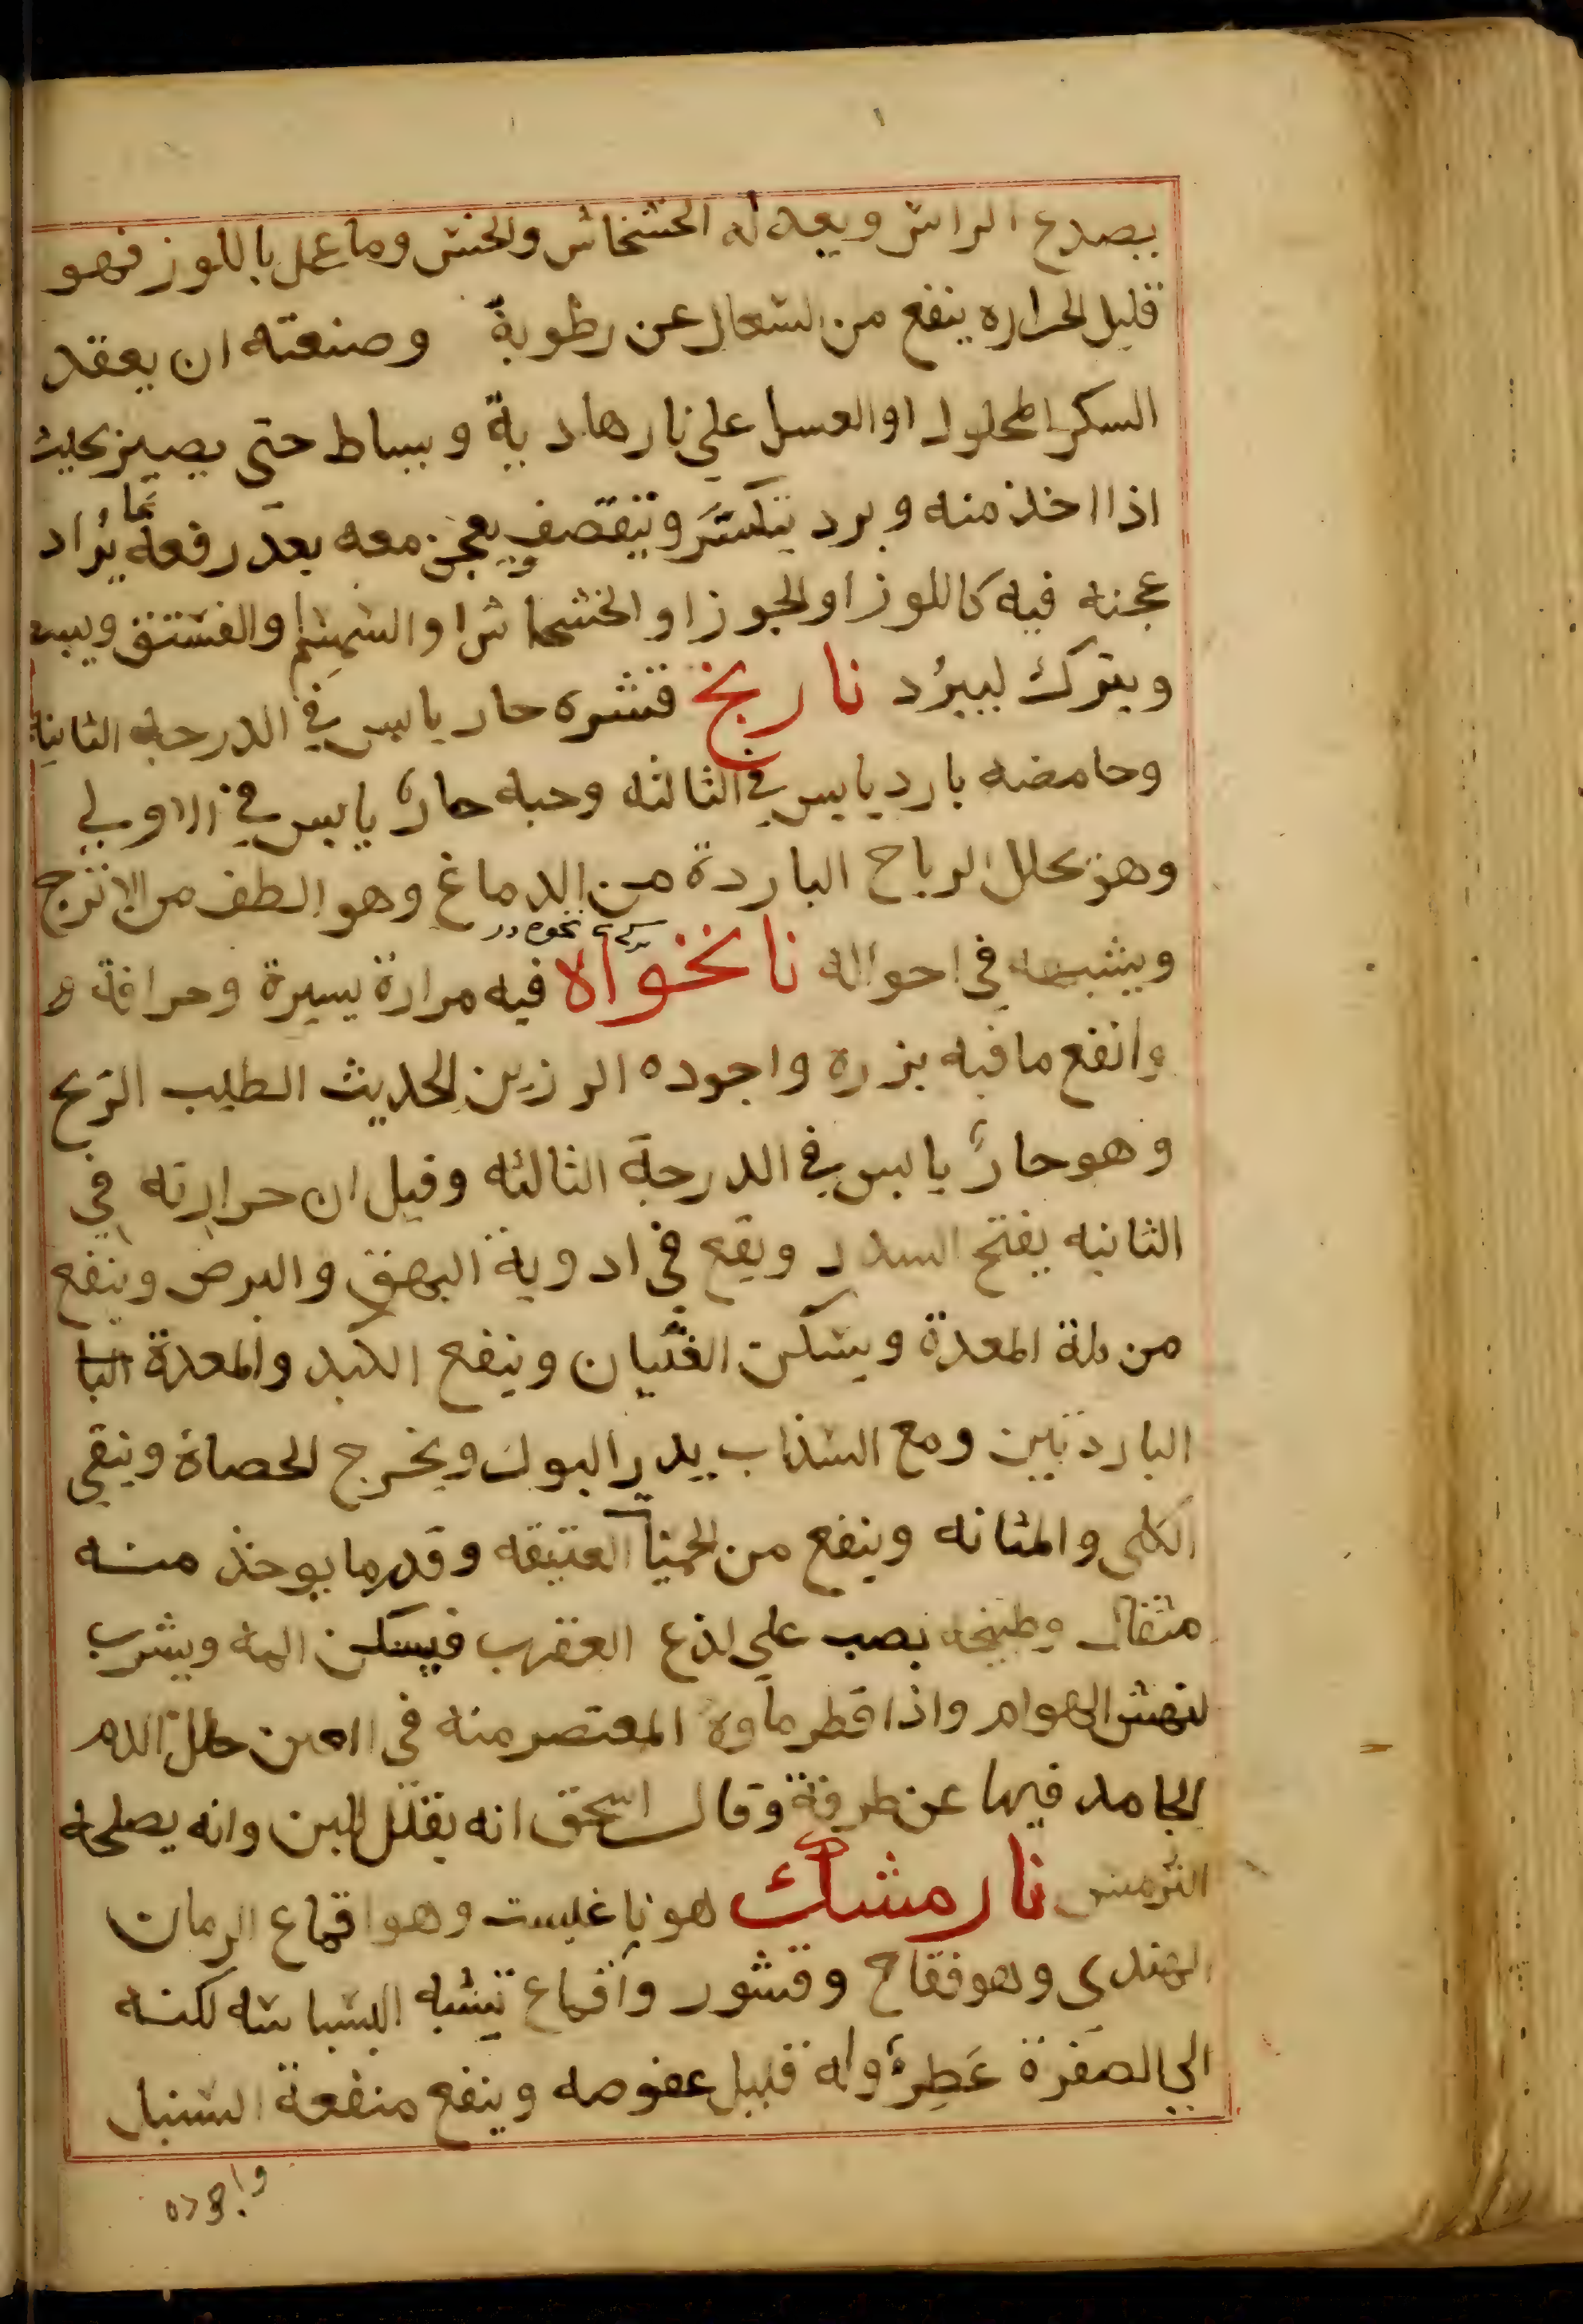 يصدع الراس ويعدله الخشخاش والخس وما عمل باللوز فهو
قليل الحراره ينفع من السعال عن رطوبة وصنعته ان يعقد
السكر المحلول او العسل على نار هادية ويساط حتى يصير بحيث
اذا اخذ منه وبرد يتكسر ويتقصف ويعجن معه بعد رفعه مما يراد
عجنه فيه كاللوز او الجوز او الخشخاش او السمسم والفستق
ويترك ليبرد نارنج قشره حار يابس في الدرجة الثانية
وحامضه بارد يابس في الثالثه وحبه حار يابس في الاولى
وهو يحلل الرياح الباردة من الدماغ وهو الطف من الاترج
ويشبهه في احواله نانخواه فيه مرارة يسيرة وحرافة
وانفع ما فيه بزره واجوده الرزين الحديث الطيب الريح
وهو حار يابس في الدرجة الثالثه وقيل ان حرارته في
الثانيه يفتح السدد ويقع في ادوية البهق والبرص وينفع
من بلة المعدة ويسكن الغثيان وينفع الكبد والمعدة البا
الباردتين ومع السذاب يدر البول ويخرج الحصاة وينقي
الكلى والمثانه وينفع من الحميات العتيقه وقدر ما يوخذ منه
مثقال وطبيخه يصب على لذع العقرب فيسكن المه ويشرب
لنهش الهوام واذا قطر ماوه المعتصر منه في العين حلل الدم
الجامد فيها عن طرفة وقال اسحق انه يقلل اللبن وانه يصلحه
الترمس نارمشك هو ناغيست وهو اقماع الرمان
الهندي وهو فقاح وقشور واقماع تشبه البسباسه لكنه
الى الصفرة عَطِرة وله قليل عفوصه وينفع منفعة السنبل
واجوده